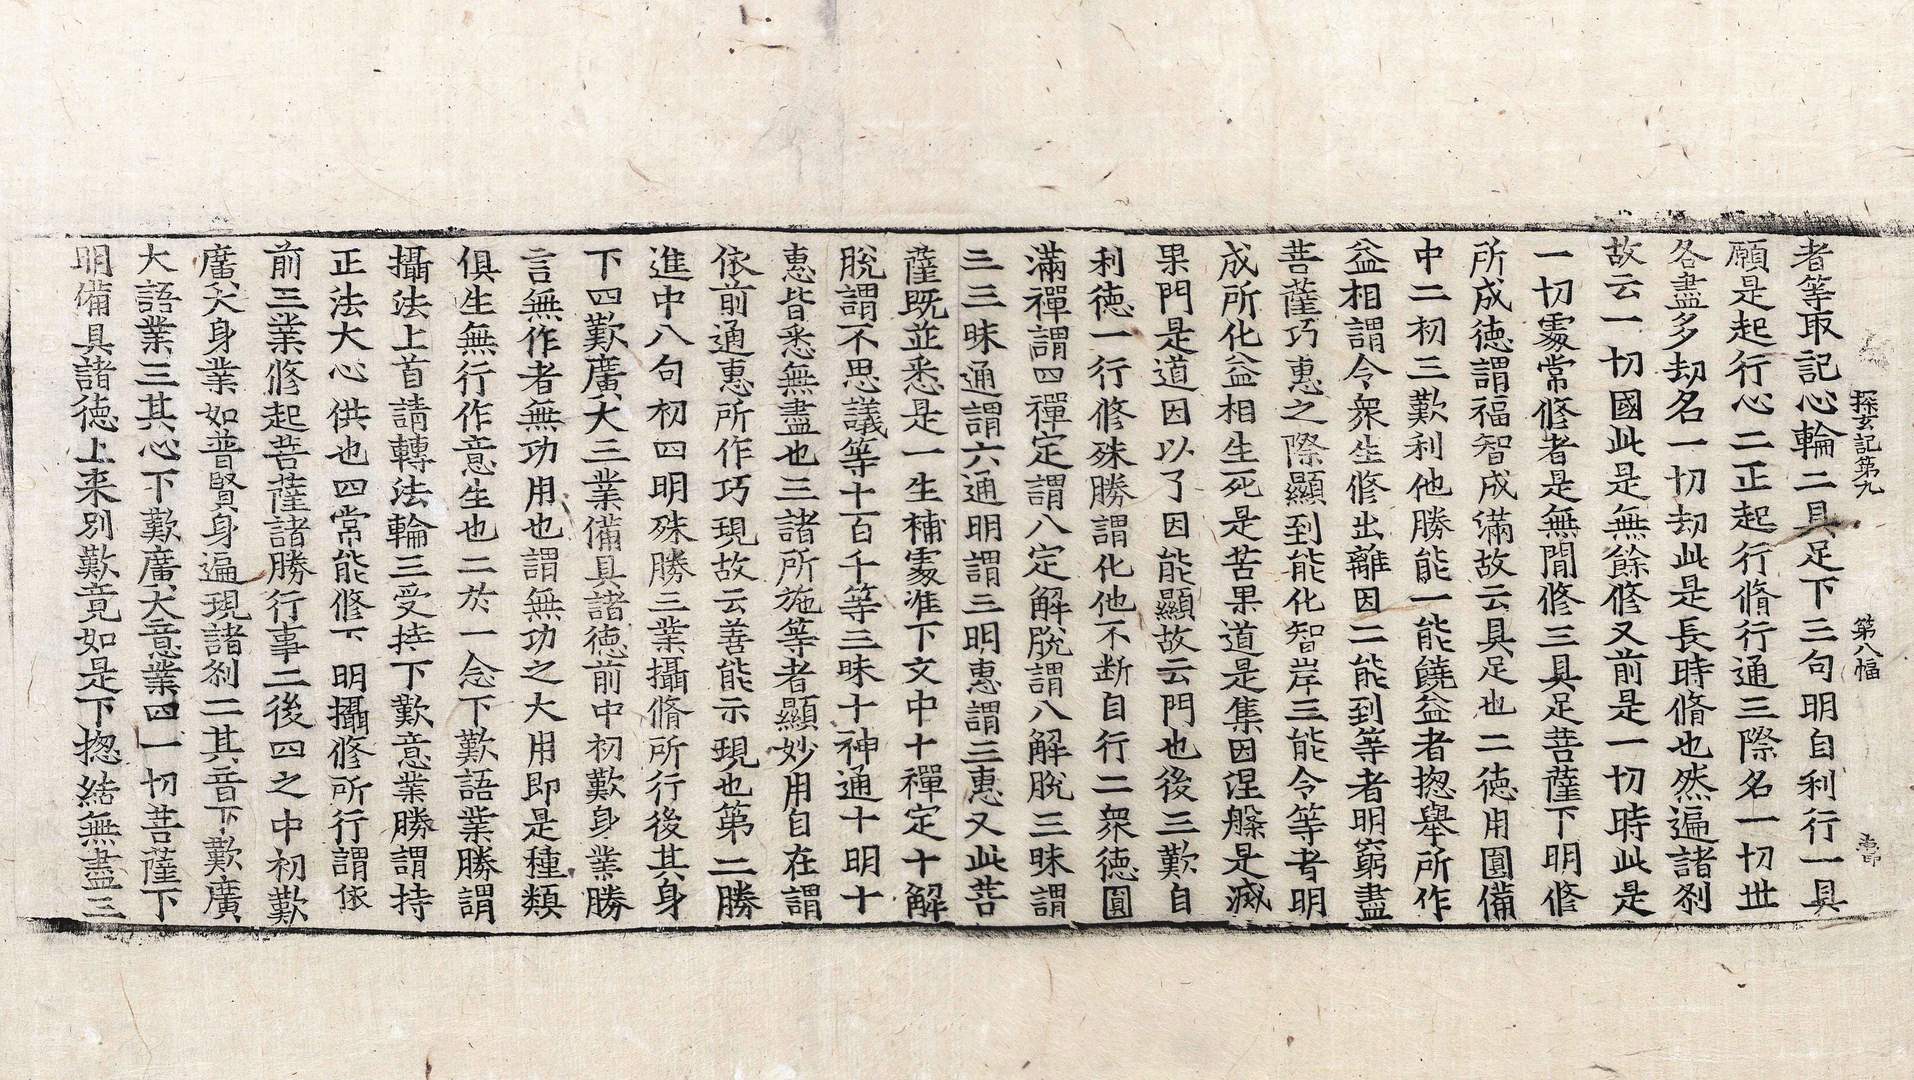 探玄記第九　第八幅
者等取記心輪二具足下三句明自利行一具
願是起行心二正起行脩行通三際名一切世
各盡多劫名一切劫此是長時脩也然遍諸刹
故云一切國此是無餘修又前是一切時此是
一切處常修者是無間修三具足菩薩下明修
所成德謂福智成滿故云具足也二德用圓備
中二初三歎利他勝能一能饒益者揔舉所作
益相謂令衆生修出離因二能到等者明窮盡
菩薩巧惠之際顯到能化智岸三能令等者明
成所化益相生死是苦果道是集因涅槃是滅
果門是道因以了因能顯故云門也後三歎自
利德一行修殊勝謂化他不断自行二衆德圓
滿禪謂四禪定謂八定解脫謂八解脫三昧謂
三三昧通謂六通明謂三明惠謂三惠又此菩
薩既並悉是一生補處准下文中十禪定十解
脫謂不思議等十百千等三昧十神通十明十
惠皆悉無盡也三諸所施等者顯妙用自在謂
依前通惠所作巧現故云善能示現也第二勝
進中八句初四明殊勝三業攝脩所行後其身
下四歎廣大三業備具諸德前中初歎身業勝
言無作者無功用也謂無功之大用即是種類
俱生無行作意生也二於一念下歎語業勝謂
攝法上首請轉法輪三受持下歎意業勝謂持
正法大心供也四常能修下明攝修所行謂依
前三業修起菩薩諸勝行事二後四之中初歎
廣大身業如普賢身遍現諸刹二其音下歎廣
大語業三其心下歎廣大意業四一切菩薩下
明備具諸德上来別歎竟如是下揔結無盡三